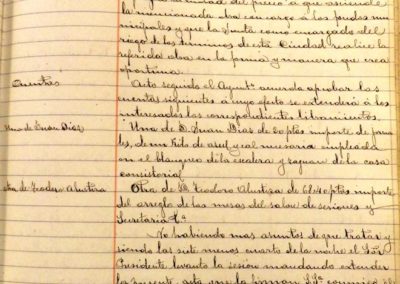 la mencionada obra con cargo á los fondos mu-
nicipales y que la Junta como encargada del
riego de los terrenos de esta Ciudad realice la
referida obra en la forma y manera que crea
oportuna.
Cuentas
Acto seguido el Ayuntº acuerda aprobar las
cuentas siguientes á cuyo efecto se extenderá á los
interesados los correspondientes libramientos.
Una de Juan Dias
Una de D. Juan Dias de ptas importe de jorna-
les, de un kilo de azul y cal necesaria empleada
en el blanqueo de la escalera y zaguan de la casa
consistorial
otra de Teodoro
Otra de D. Teodoro de ptas importe
del arreglo de las mesas del salon de sesiones y
Secretaria
No habiendo mas asuntos de que tratar y
siendo las siete menos cuarto de la noche el Sor
Presidente levantó la sesion mandando extender
la presente acta que la firman